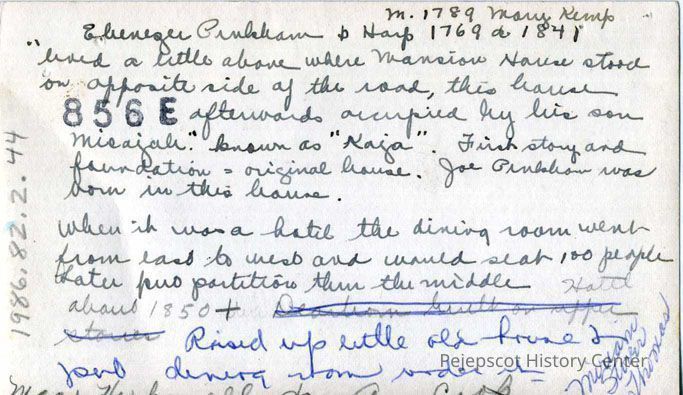 M. 1789 Mary Kemp
Ebenezer Pinkham b Harp 1769 d 1841
"lived a little above where Mansion House stood
on opposite side of the road, this house
856E afterwards occupied by his son
Micajah." known as "Kaja". First story and
foundation = original house. Joe Pinkham was
born in this house.
When it was a hotel the dining room went
from east to west and would seat 100 people
Later put partition thru the middle
Hotel
about 1850 +
stories
Raised up little old house &
put dining room under it
Pejepscot History Center
1986.82.2.44
Miriam
Thomas